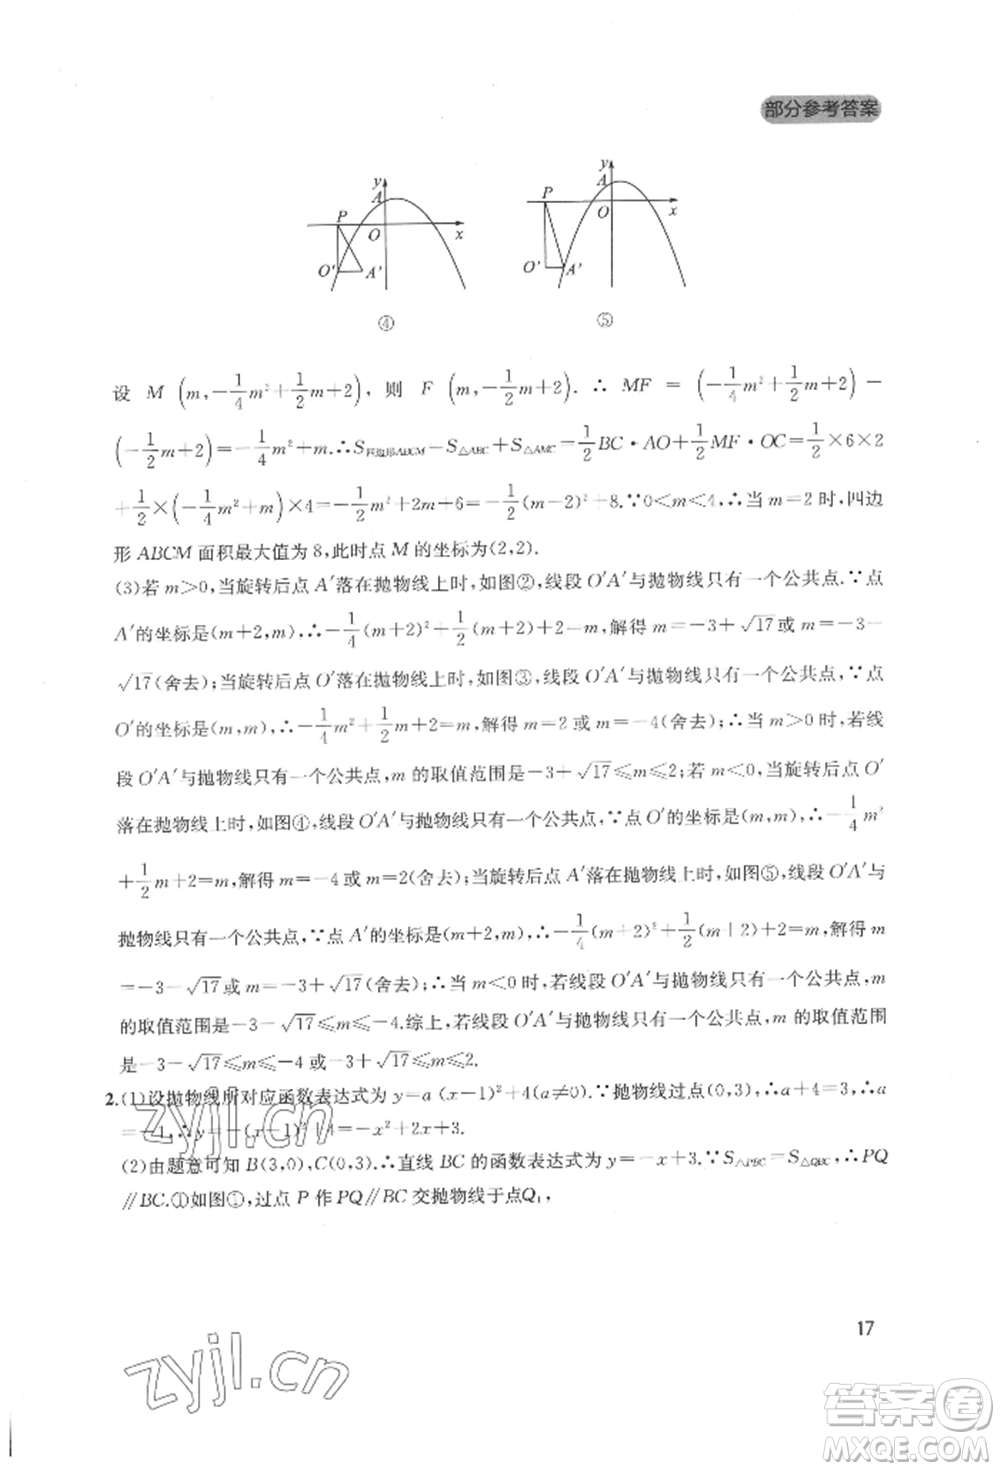 部分参考答案
y A P O x O′ A′ ④
y P A O x O′ A′ ⑤
设 M (m,-1/4m²+1/2m+2), 则 F (m,-1/2m+2). ∴ MF = (-1/4m²+1/2m+2) -
(-1/2m+2)=-1/4m²+m.∴S四边形ABCM=S△ABC+S△AMC=1/2BC·AO+1/2MF·OC=1/2×6×2
+1/2×(-1/4m²+m)×4=-1/2m²+2m+6=-1/2(m-2)²+8.∵0<m<4,∴当m=2时,四边
形ABCM面积最大值为8,此时点M的坐标为(2,2).
(3)若m>0,当旋转后点A′落在抛物线上时,如图②,线段O′A′与抛物线只有一个公共点.∵点
A′的坐标是(m+2,m),∴-1/4(m+2)²+1/2(m+2)+2=m,解得m=-3+√17或m=-3-
√17(舍去);当旋转后点O′落在抛物线上时,如图③,线段O′A′与抛物线只有一个公共点,∵点
O′的坐标是(m,m),∴-1/4m²+1/2m+2=m,解得m=2或m=-4(舍去);∴当m>0时,若线
段O′A′与抛物线只有一个公共点,m的取值范围是-3+√17≤m≤2;若m<0,当旋转后点O′
落在抛物线上时,如图④,线段O′A′与抛物线只有一个公共点,∵点O′的坐标是(m,m),∴-1/4m²
+1/2m+2=m,解得m=-4或m=2(舍去);当旋转后点A′落在抛物线上时,如图⑤,线段O′A′与
抛物线只有一个公共点,∵点A′的坐标是(m+2,m),∴-1/4(m+2)²+1/2(m+2)+2=m,解得m
=-3-√17或m=-3+√17(舍去);∴当m<0时,若线段O′A′与抛物线只有一个公共点,m
的取值范围是-3-√17≤m≤-4.综上,若线段O′A′与抛物线只有一个公共点,m的取值范围
是-3-√17≤m≤-4或-3+√17≤m≤2.
2.(1)设抛物线所对应函数表达式为y=a(x-1)²+4(a≠0).∵抛物线过点(0,3),∴a+4=3,∴a
=-1,∴y=-(x-1)²+4=-x²+2x+3.
(2)由题意可知B(3,0),C(0,3).∴直线BC的函数表达式为y=-x+3.∵S△PBC=S△QBC,∴PQ
∥BC.①如图①,过点P作PQ∥BC交抛物线于点Q₁,
17
zyjl.cn
zyjl.cn
答案圈
MXQE.COM